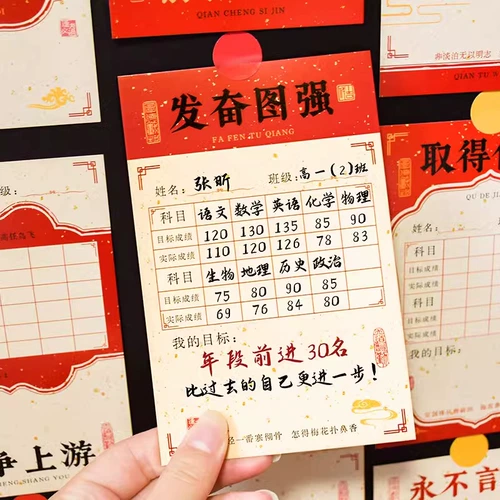 QIAN CHENG SI JIN
非淡泊无以明志
发奋图强
FA FEN TU QIANG
姓名: 张昕 班级: 高一(2)班
科目 语文 数学 英语 化学 物理
目标成绩 120 130 135 85 90
实际成绩 110 120 126 78 83
科目 生物 地理 历史 政治
目标成绩 75 80 90 85
实际成绩 69 76 84 80
我的目标:
年段前进30名
比过去的自己更进一步!
经一番寒彻骨 怎得梅花扑鼻香
取得
QU DE
姓名:
科目
目标成绩
实际成绩
科目
目标成绩
实际成绩
我的目标:
争上游
ZHENG SHANG YOU
永不言